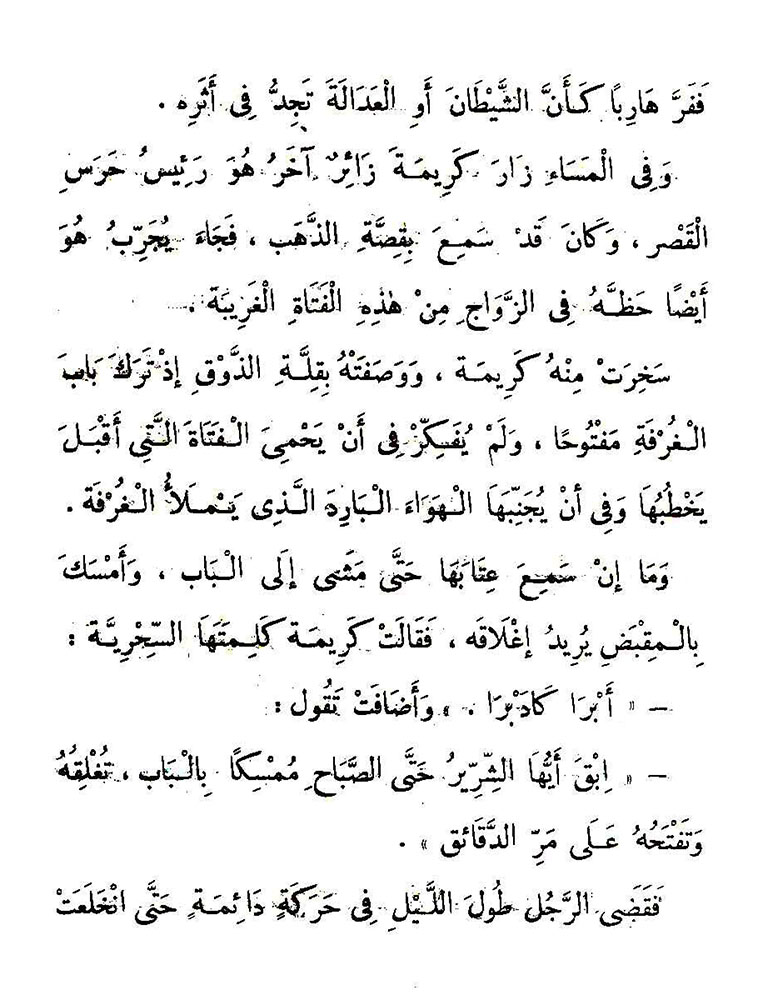 فَفَرَّ هَارِبًا كَأَنَّ الشَّيْطَانَ أَوِ الْعَدَالَةَ تَجِدُّ فِى أَثَرِه .
وَفِى الْمَسَاءِ زَارَ كَرِيمَةَ زَائِرٌ آخَرُ هُوَ رَئِيسُ حَرَسِ
الْقَصْر ، وَكَانَ قَدْ سَمِعَ بِقِصَّةِ الذَّهَب ، فَجَاءَ يُجَرِّبُ هُوَ
أَيْضًا حَظَّهُ فِى الزَّوَاجِ مِنْ هٰذِهِ الْفَتَاةِ الْغَرِيبَة .
سَخِرَتْ مِنْهُ كَرِيمَة ، وَوَصَفَتْهُ بِقِلَّةِ الذَّوْقِ إِذْ تَرَكَ بَابَ
الْغُرْفَةِ مَفْتُوحًا ، وَلَمْ يُفَكِّرْ فِى أَنْ يَحْمِىَ الْفَتَاةَ الَّتِى أَقْبَلَ
يَخْطُبُهَا وَفِى أنْ يُجَنِّبَهَا الْهَوَاءَ الْبَارِدَ الَّذِى يَمْلَأُ الْغُرْفَة .
وَمَا إِنْ سَمِعَ عِتَابَهَا حَتَّى مَشَى إِلَى الْبَاب ، وَأَمْسَكَ
بِالْمِقْبَضِ يُرِيدُ إِغْلَاقَه ، فَقَالَتْ كَرِيمَة كَلِمَتَهَا السِّحْرِيَّة :
— « أَبْرَا كَادَبْرَا . » وَأَضَافَتْ تَقُول :
— « اِبْقَ أَيُّهَا الشِّرِّيرُ حَتَّى الصَّبَاحِ مُمْسِكًا بِالْبَاب ، تُغْلِقُهُ
وَتَفْتَحُهُ عَلَى مَرِّ الدَّقَائِق » .
فَقَضَى الرَّجُل طُولَ اللَّيْلِ فِى حَرَكَةٍ دَائِمَة حَتَّى انْخَلَعَتْ